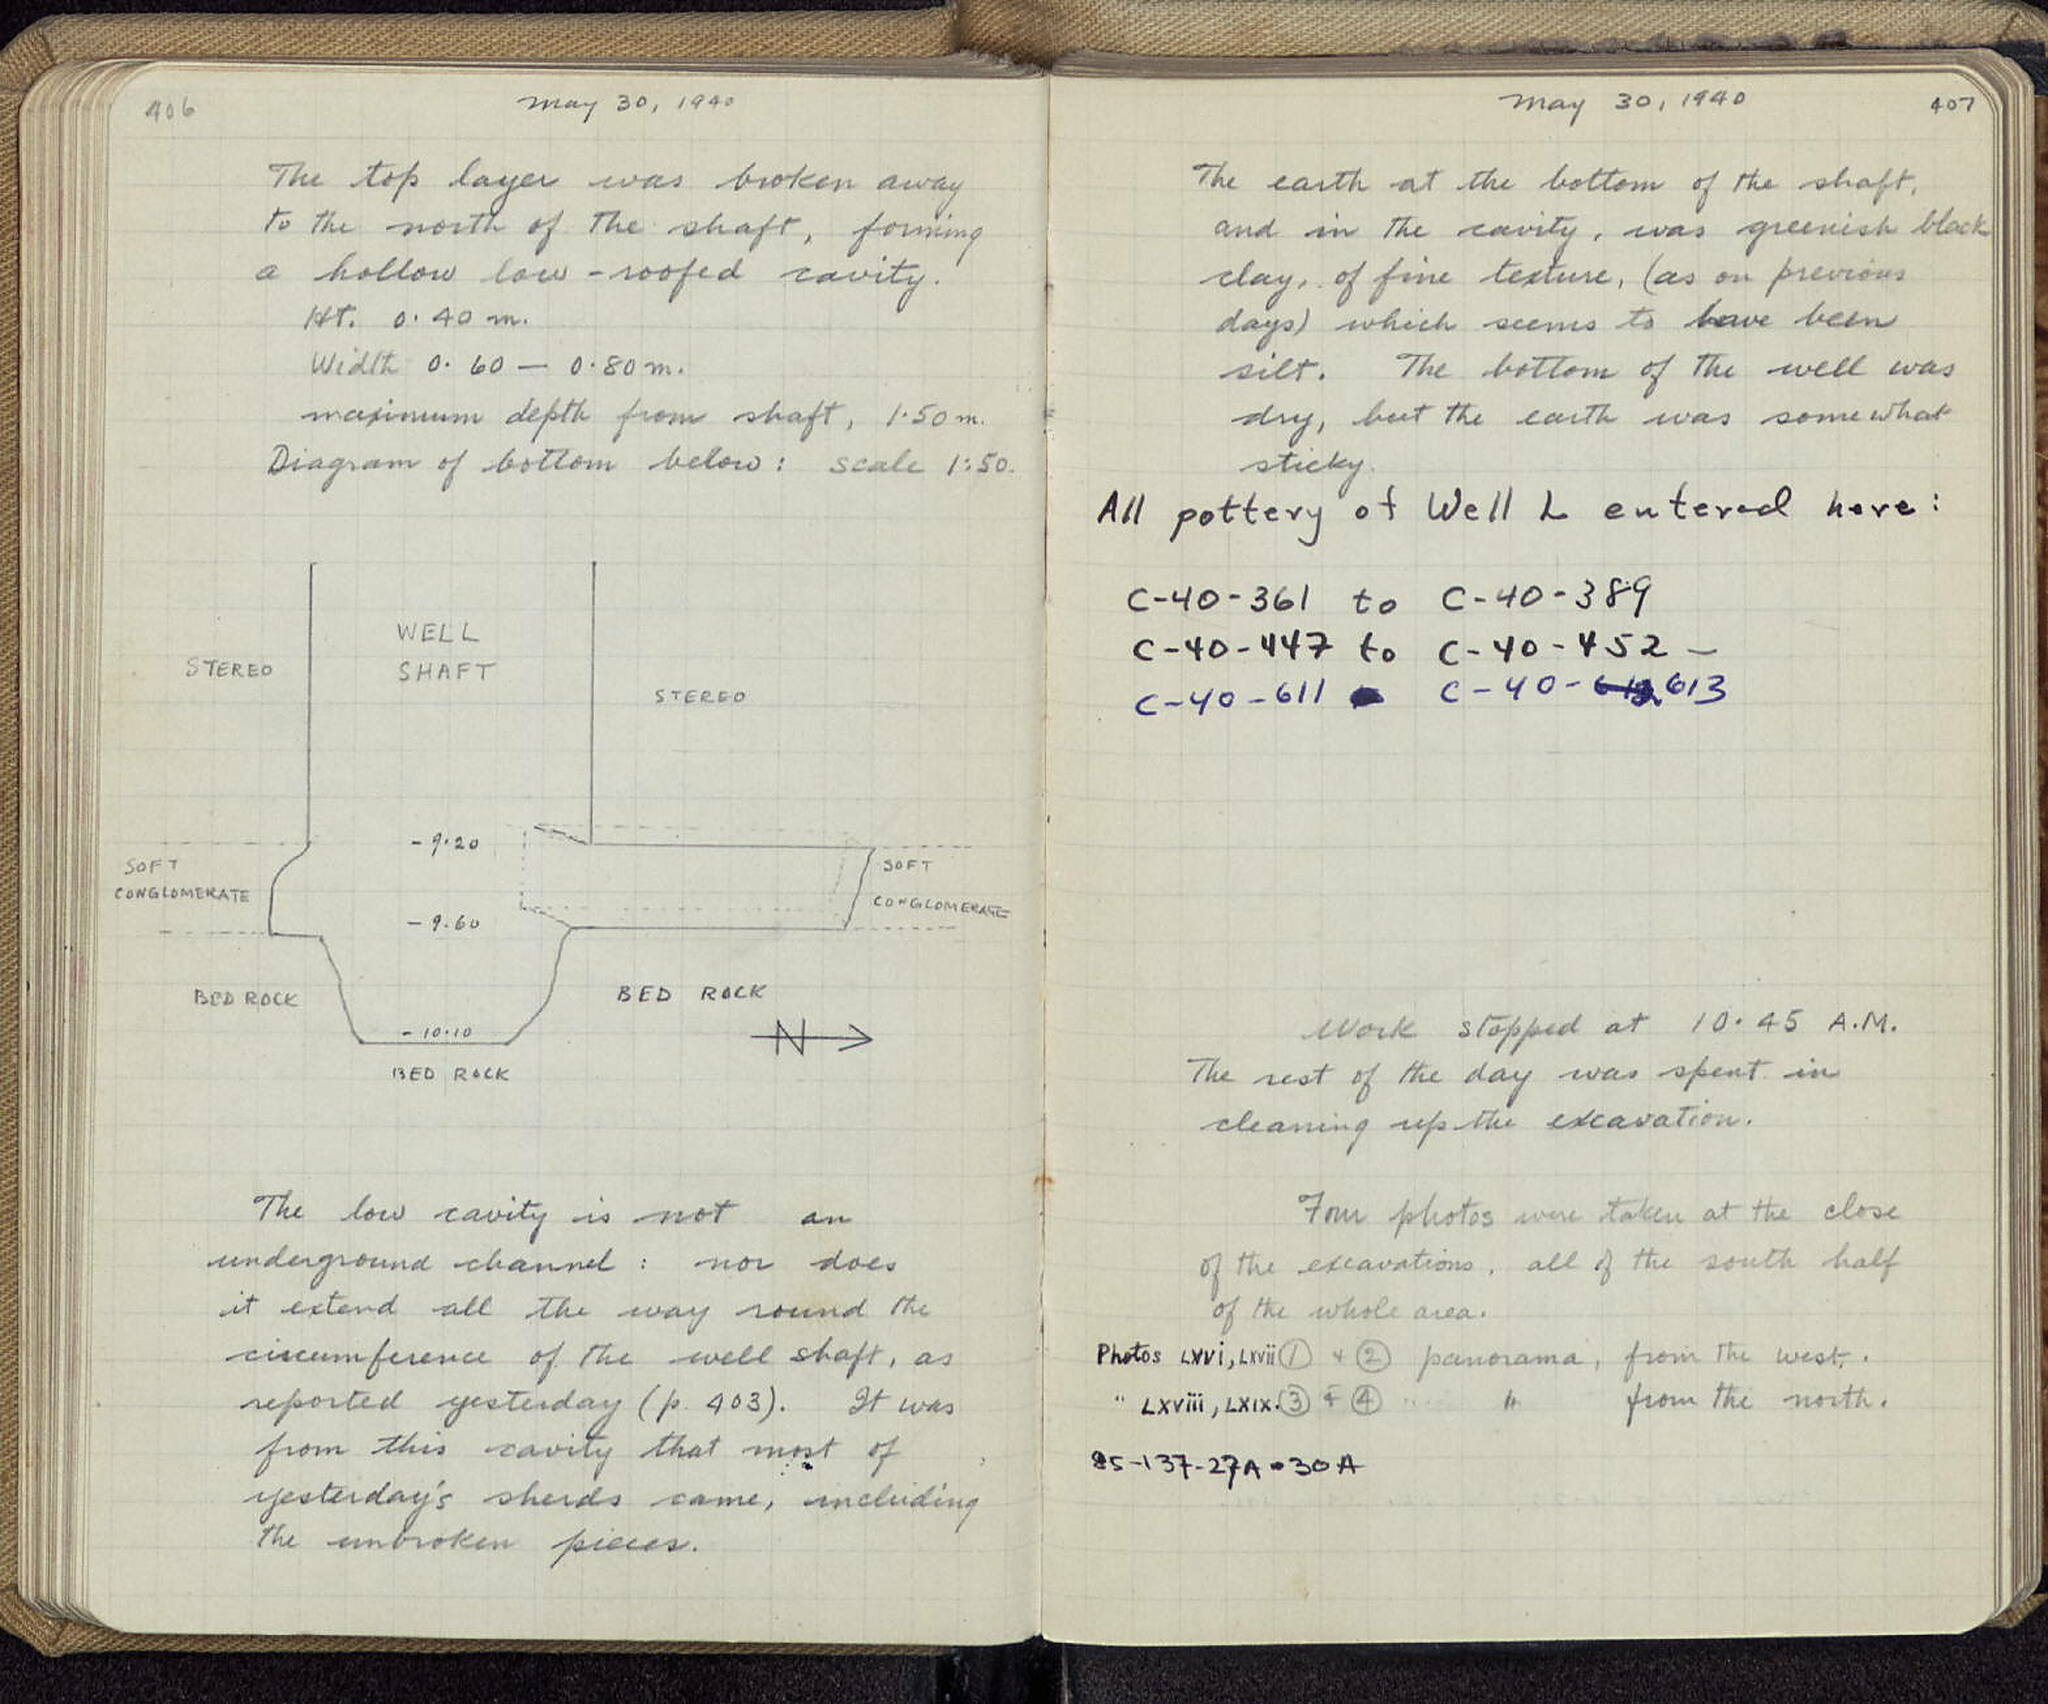 406
May 30, 1940
The top layer was broken away
to the north of the shaft, forming
a hollow low-roofed cavity.
Ht. 0.40 m.
Width 0.60 — 0.80 m.
maximum depth from shaft, 1.50 m.
Diagram of bottom below: scale 1:50.
WELL
SHAFT
STEREO
STEREO
-9.20
SOFT
CONGLOMERATE
SOFT
CONGLOMERATE
-9.60
BED ROCK
BED ROCK
N
-10.10
BED ROCK
The low cavity is not an
underground channel: nor does
it extend all the way round the
circumference of the well shaft, as
reported yesterday (p. 403). It was
from this cavity that most of
yesterday's sherds came, including
the unbroken pieces.
May 30, 1940
407
The earth at the bottom of the shaft,
and in the cavity, was greenish black
clay, of fine texture, (as on previous
days) which seems to have been
silt. The bottom of the well was
dry, but the earth was somewhat
sticky.
All pottery of Well L entered here:
C-40-361 to C-40-389
C-40-447 to C-40-452 —
C-40-611 C-40-613
Work stopped at 10.45 A.M.
The rest of the day was spent in
cleaning up the excavation.
Four photos were taken at the close
of the excavations, all of the south half
of the whole area.
Photos LXVi, LXVii ① + ② panorama, from the west.
" LXViii, LXIX. ③ + ④ " " from the north.
85-137-27A-30A